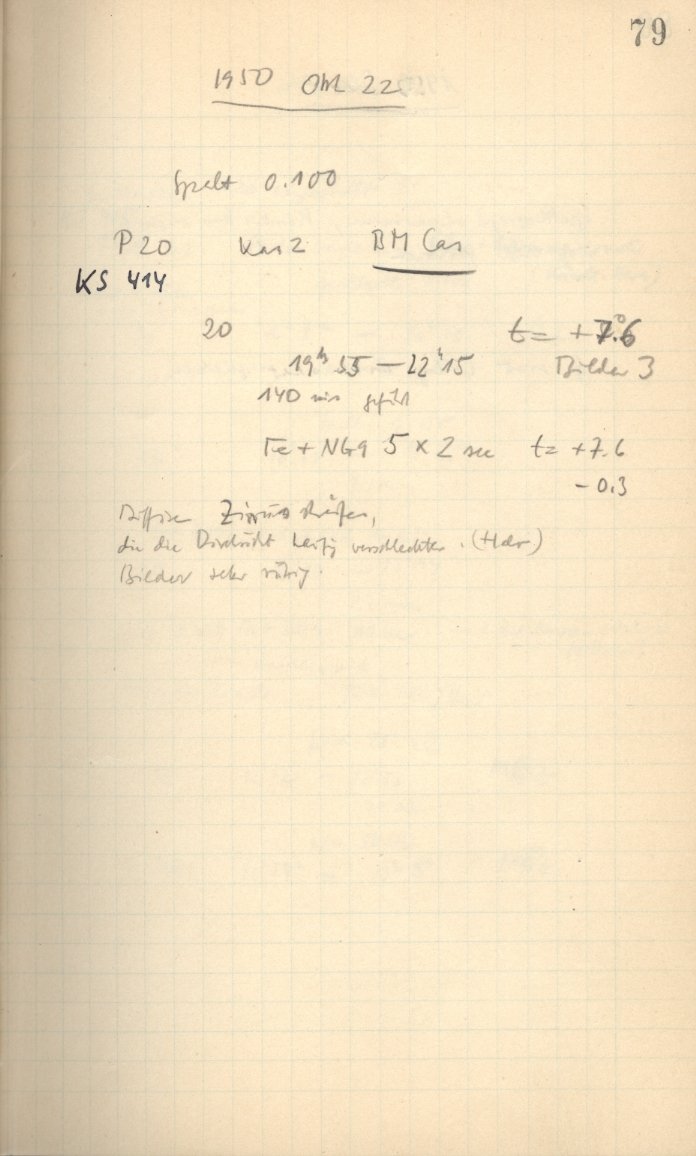 79
1950 Okt 22
Spalt 0.100
P 20 Kas 2 BM Cas
KS 414
20 t = +7.°6
19ʰ 55 — 22ʰ 15 Bilder 3
140 min geführt
Fe + NG9 5 × 2 sec t = +7.6
- 0.3
Diffuse Zirrus
die die Durchsicht verschlechtern. (Halo)
Bilder sehr ruhig.